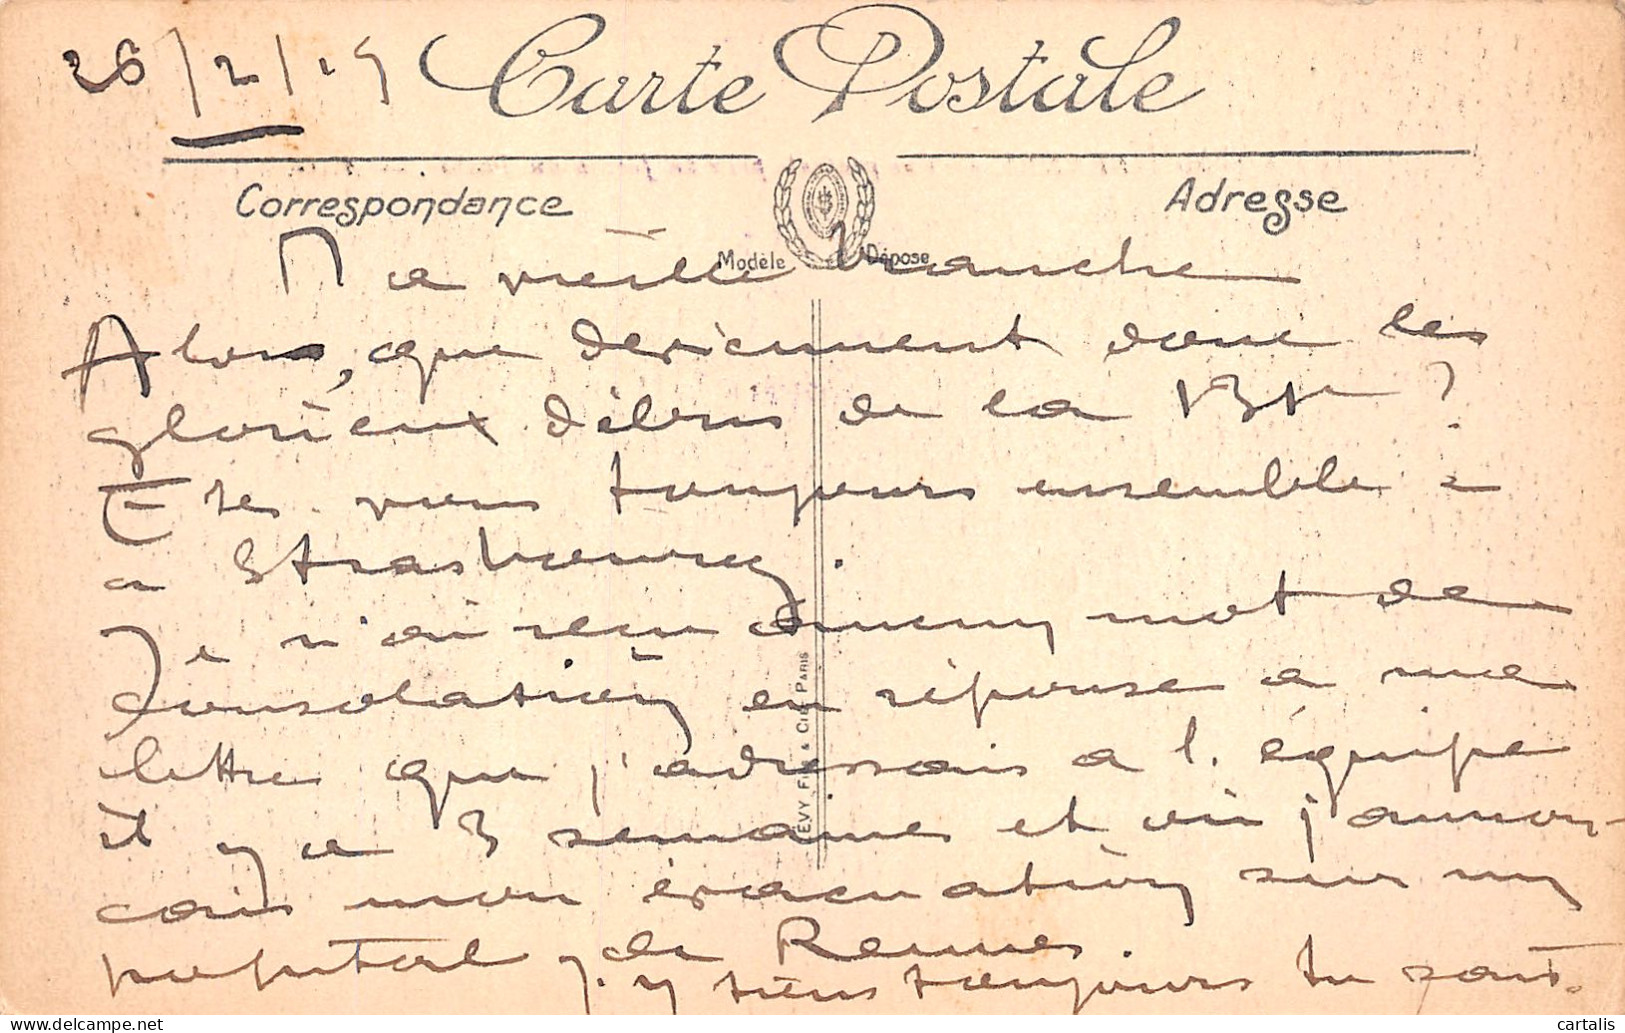 26/2/19
Carte Postale
Correspondance
Adresse
Modèle Déposé
Ma vieille branche
Alors, que deviennent donc les
glorieux débris de la ?
Etes vous toujours ensemble
a Strasbourg.
Je n'ai reçu aucun mot de
consolation en réponse a ma
lettre que j'adressais a l'équipe
il y a 3 semaines et où j'annon-
cais mon évacuation sur un
hopital de Rennes.
J'y suis toujours tu sais.
LEVY FILS & CIE PARIS
cartalis